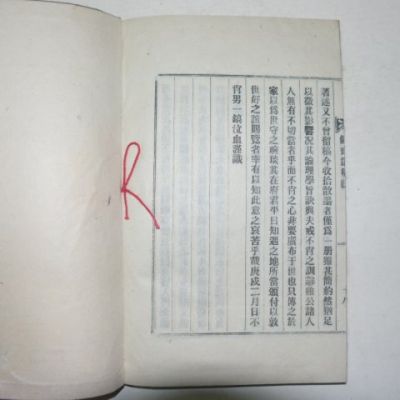 著述又不曾留稿今收拾散逸者僅爲一冊雖甚簡約然猶足
以徵其影響況其論理學旨訣與夫戒不肖之訓諸公諸人
人無有不切當者乎而不肖之心非要廣布于世也只傳之於
家以爲世守之琬琰其在府君平日知遇之地所當頒付以敦
世好之誼閱覽者幸有以知此意之哀苦乎歲庚戌二月日不
肖男一鎬泣血謹識
R